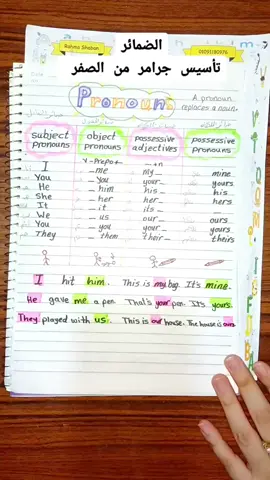 Rahma Shaban
01091180976
الضمائر
تأسيس جرامر من الصفر
Pronouns
A pronoun replaces a noun.
subject pronouns
object pronouns
possessive adjectives
possessive pronouns
I
_ me
my _
mine
You
_ you
your _
yours
He
_ him
his _
his
She
_ her
her _
hers
It
_ it
its _
We
_ us
our _
ours
You
_ you
your _
yours
They
_ them
their _
theirs
I hit him. This is my bag. It's mine.
He gave me a pen. That's your pen. It's yours.
They played with us. This is our house. The house is ours.